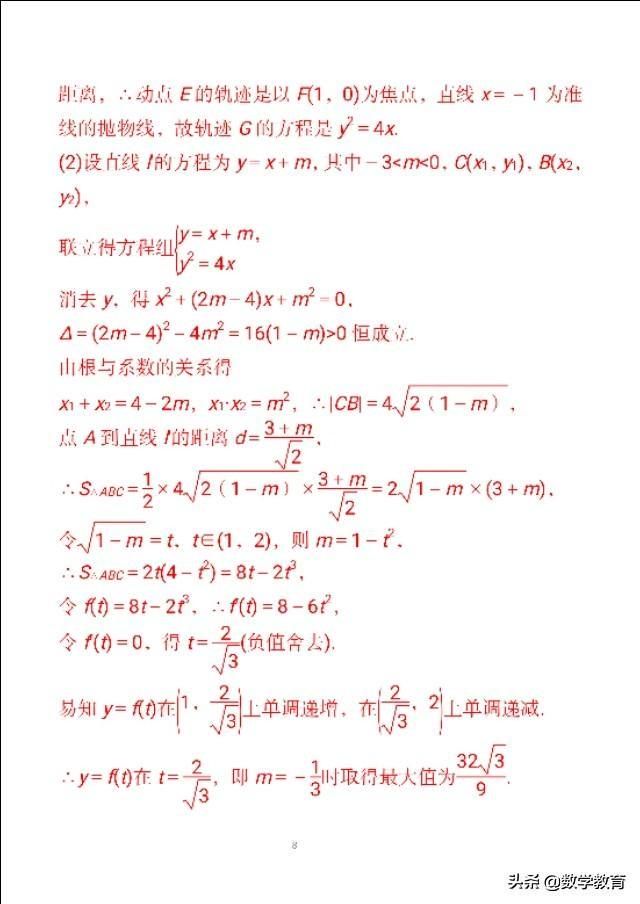 距离，∴动点 E 的轨迹是以 F(1，0)为焦点，直线 x = －1 为准
线的抛物线，故轨迹 G 的方程是 y² = 4x.
(2)设直线 l 的方程为 y = x + m，其中－3<m<0，C(x₁，y₁)，B(x₂，
y₂)，
联立得方程组{y = x + m，
y² = 4x
消去 y，得 x² + (2m－4)x + m² = 0，
Δ = (2m－4)²－4m² = 16(1－m)>0 恒成立.
由根与系数的关系得
x₁ + x₂ = 4－2m，x₁·x₂ = m²，∴|CB| = 4√2（1－m），
点 A 到直线 l 的距离 d = (3 + m)/√2，
∴S△ABC = 1/2 × 4√2（1－m） × (3 + m)/√2 = 2√1－m × (3 + m)，
令√1－m = t，t∈(1，2)，则 m = 1－t²，
∴S△ABC = 2t(4－t²) = 8t－2t³，
令 f(t) = 8t－2t³，∴f′(t) = 8－6t²，
令 f′(t) = 0，得 t = 2/√3(负值舍去).
易知 y = f(t)在(1，2/√3)上单调递增，在(2/√3，2)上单调递减.
∴y = f(t)在 t = 2/√3，即 m = －1/3时取得最大值为32√3/9.
8
头条 @数学教育